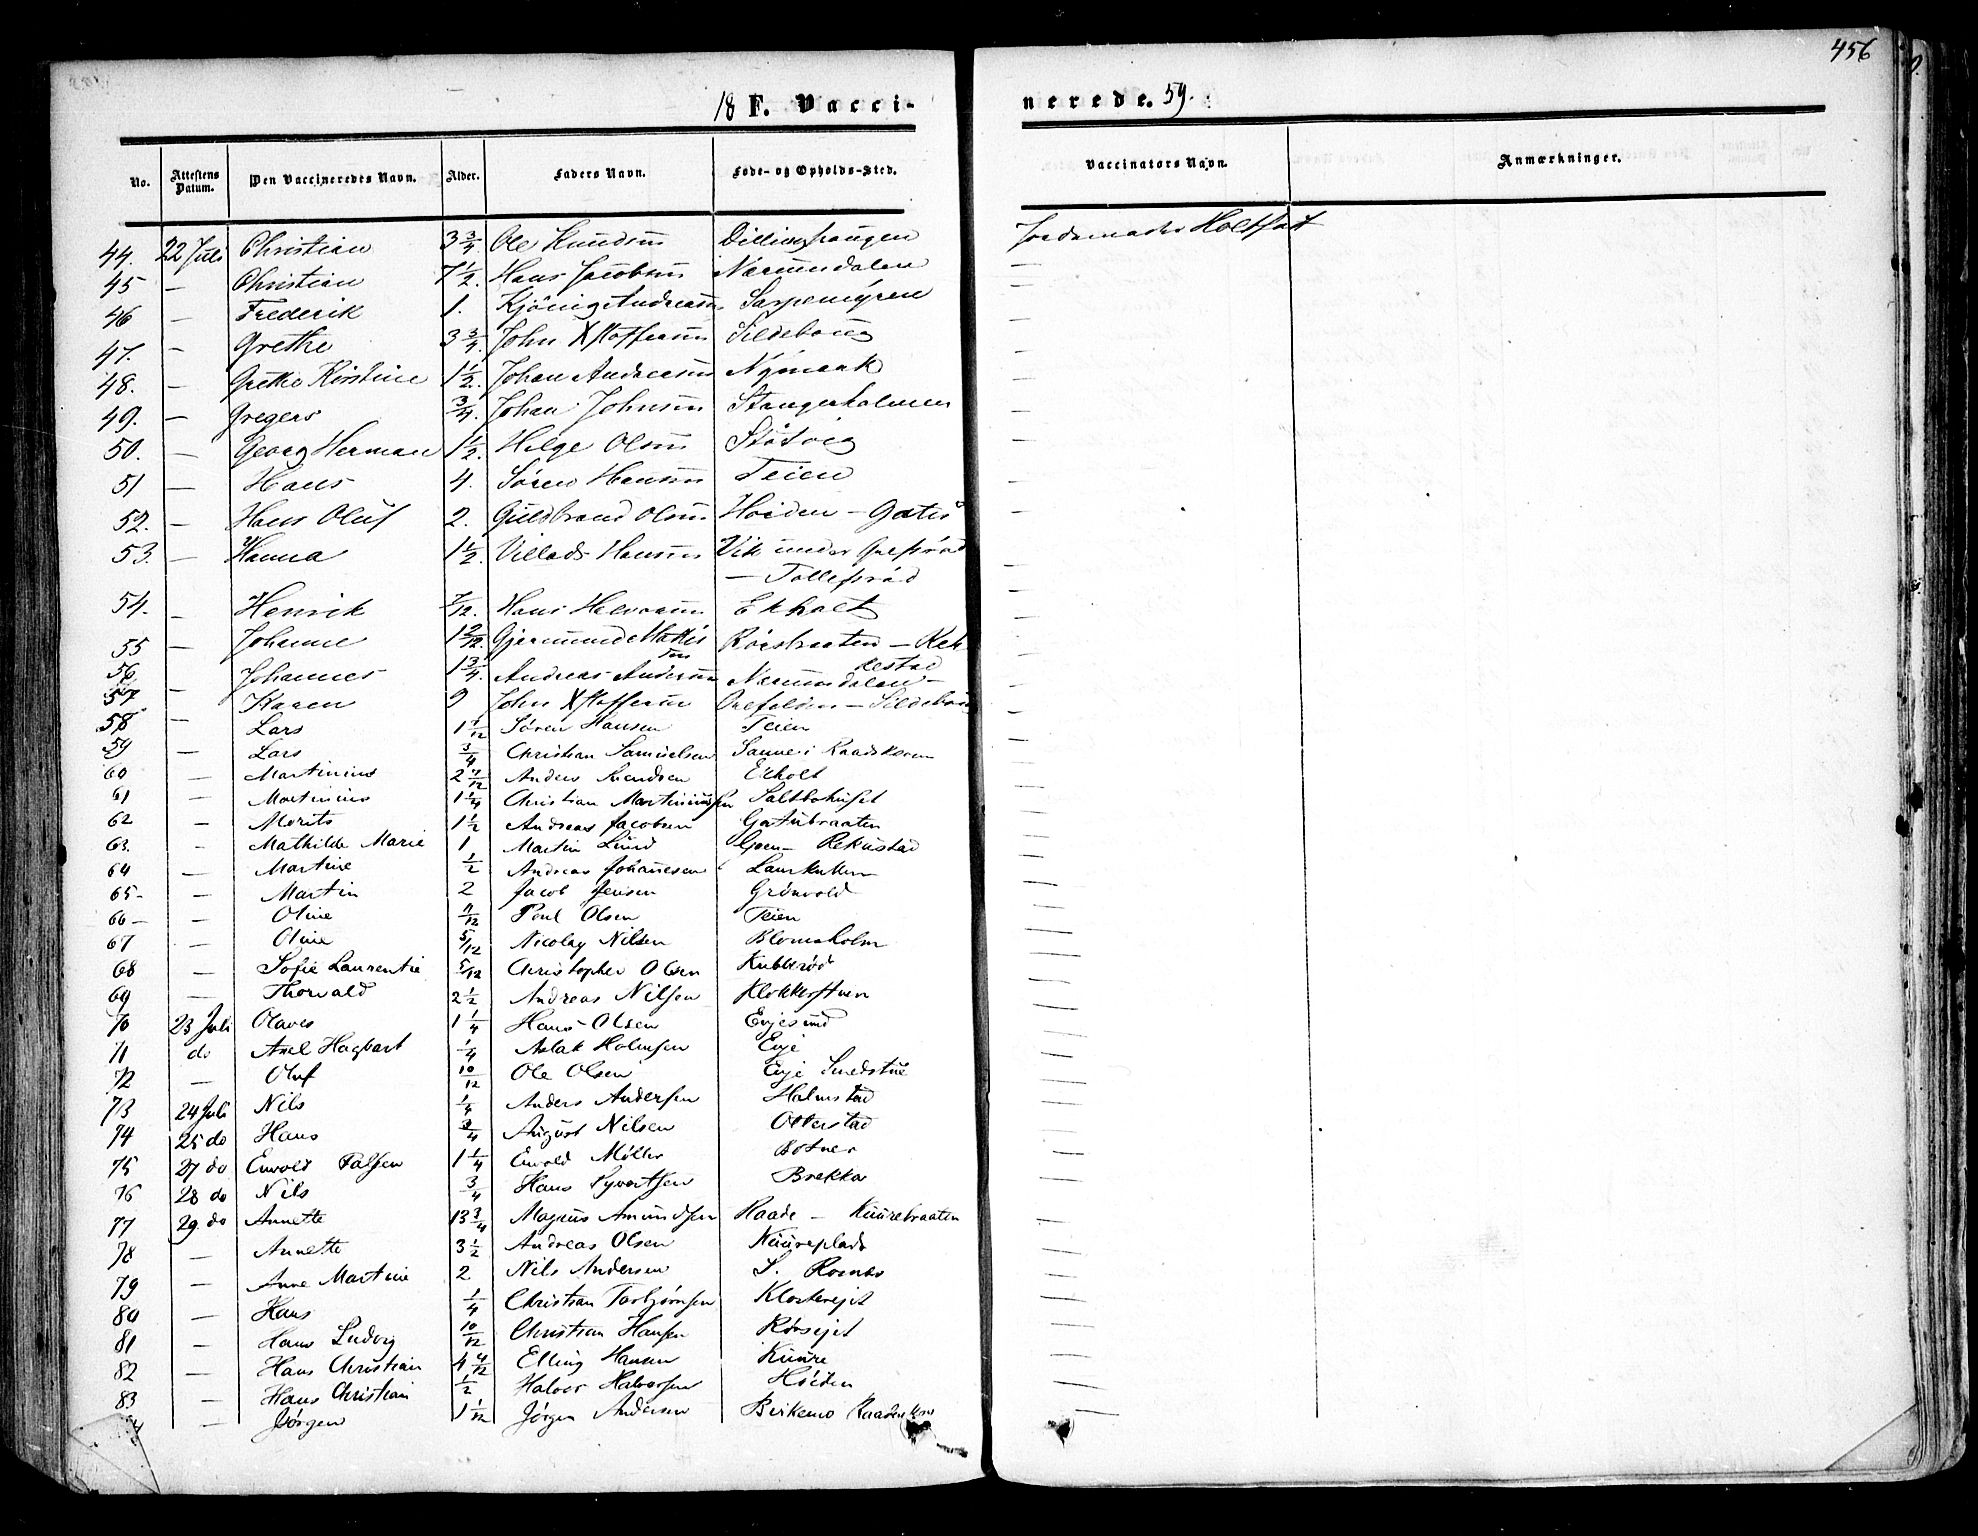 456
18 F. Vacci-
nerede. 59.
No. Attestens Datum. Den Vaccineredes Navn. Alder. Faders Navn. Føde- og Opholds-Sted. Vaccinators Navn. Anmærkninger.
44. 22 Juli Christian 3 3/4 Ole Knudsen Jordemoder Holtfodt
45 — Christian 7 1/2. Hans Jacobsen Narumdalen —
46 — Frederik 1. Kjönig Andreasen Sarpemÿren —
47. — Grethe 3 3/4. John Xstoffersen Sildebaug —
48. — Grethe Kirstine 1 1/2. Johan Andreasen Nÿmaak —
49. — Gregers 3/4. Johan Johnsen Stangerholmen —
50. — Georg Herman 1 1/2. Helge Olsen Støtvig —
51 — Hans 4. Sören Hansen Teien —
52. — Hans Oluf 2. Guldbrand Olsen Hoiden — Gatu —
53. — Hanna 1 1/2. Villads Hansen Vik under
— Tollefsröd
54. — Henrik 7/12. Hans Ekholt —
55 — Johanne 1 2/12. Gjermund Mattis Röisbraaten — Rek
sen kestad
56 — Johannes 1 3/4. Andreas Andersen Narumdalen —
57 — Karen 9 John Xstoffersen — Sildebaug —
58 — Lars 1 1/12 Søren Hansen Teien —
59 — Lars 3/4 Christian Samuelsen Sanne i Raadskoven —
60 — Martinius 2 7/12 Anders Svendsen Ekholt —
61 — Martinius 1 1/4 Christian Martiniussen Saltbohuset —
62 — Morits 1 1/2 Andreas Jacobsen Gatubraaten —
63. — Mathilde Marie 1 Martin Lund Rekustad —
64 — Martine 1/2 Andreas Johannesen Laurkullen —
65 — Martin 2 Jacob Jensen Grönvold —
66 — Oline 7/12 Poul Olsen Teien —
67 — Oline 5/12 Nicolay Nilsen Blomsholm —
68 — Sofie Laurentie 5/12 Christopher Olsen Kubberød —
69 — Thorvald 2 1/2 Andreas Nilsen Klokkerstuen —
70 23 Juli Olaves 1 1/4 Hans Olsen Evjesund —
71 do Axel Hagbart 1/4 Aslak Holmsen Evje —
72 — Oluf 10/12 Ole Olsen Evje Smedstue —
73 24 Juli Nils 1/4 Anders Andersen Halmstad —
74 25 do Hans 3/4 August Nilsen Otterstad —
75 27 do Envold Palsen 1 1/4 Envold Möller Botner —
76 28 do Nils 3/4 Hans Syvertsen Brekka —
77 29 do Annette 13 3/4 Magnus Amundsen Raade — Kuurebraaten —
78 — Annette 3 1/2 Andreas Olsen Kuureplads —
79 — Anne Martine 2 Nils Andersen S. Rosnes —
80 — Hans 1/4 Christian Torbjørnsen Klosterejet —
81 — Hans Ludvig 10/12 Christian Hansen Rørsejet —
82 — Hans Christian 4 4/12 Elling Hansen Kuure —
83 — Hans Christian 1/2 Halvor Halvorsen Hóiden —
— Jørgen 1 1/12 Jørgen Andersen Birkemo —